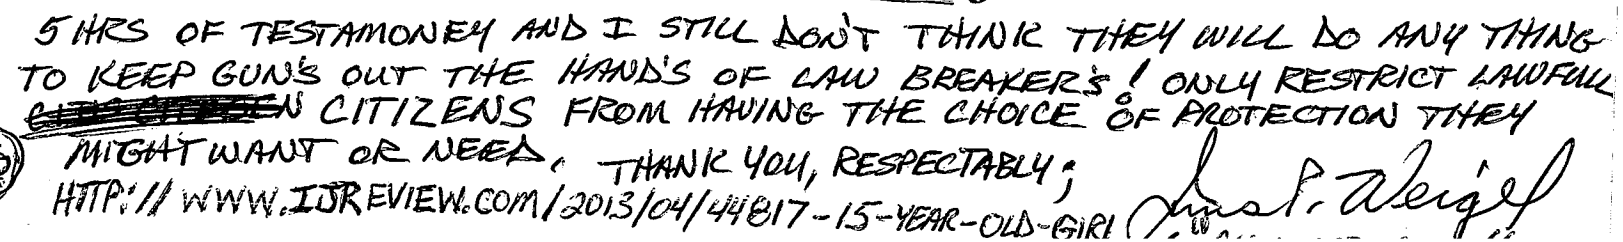 5 HRS OF TESTAMONEY AND I STILL DON'T THINK THEY WILL DO ANY THING
TO KEEP GUN'S OUT THE HAND'S OF LAW BREAKER'S! ONLY RESTRICT LAWFULL
CITIZENS FROM HAVING THE CHOICE OF PROTECTION THEY
MIGHT WANT OR NEED. THANK YOU, RESPECTABLY;
HTTP://WWW.IJREVIEW.COM/2013/04/44817-15-YEAR-OLD-GIRL
P. Weigel